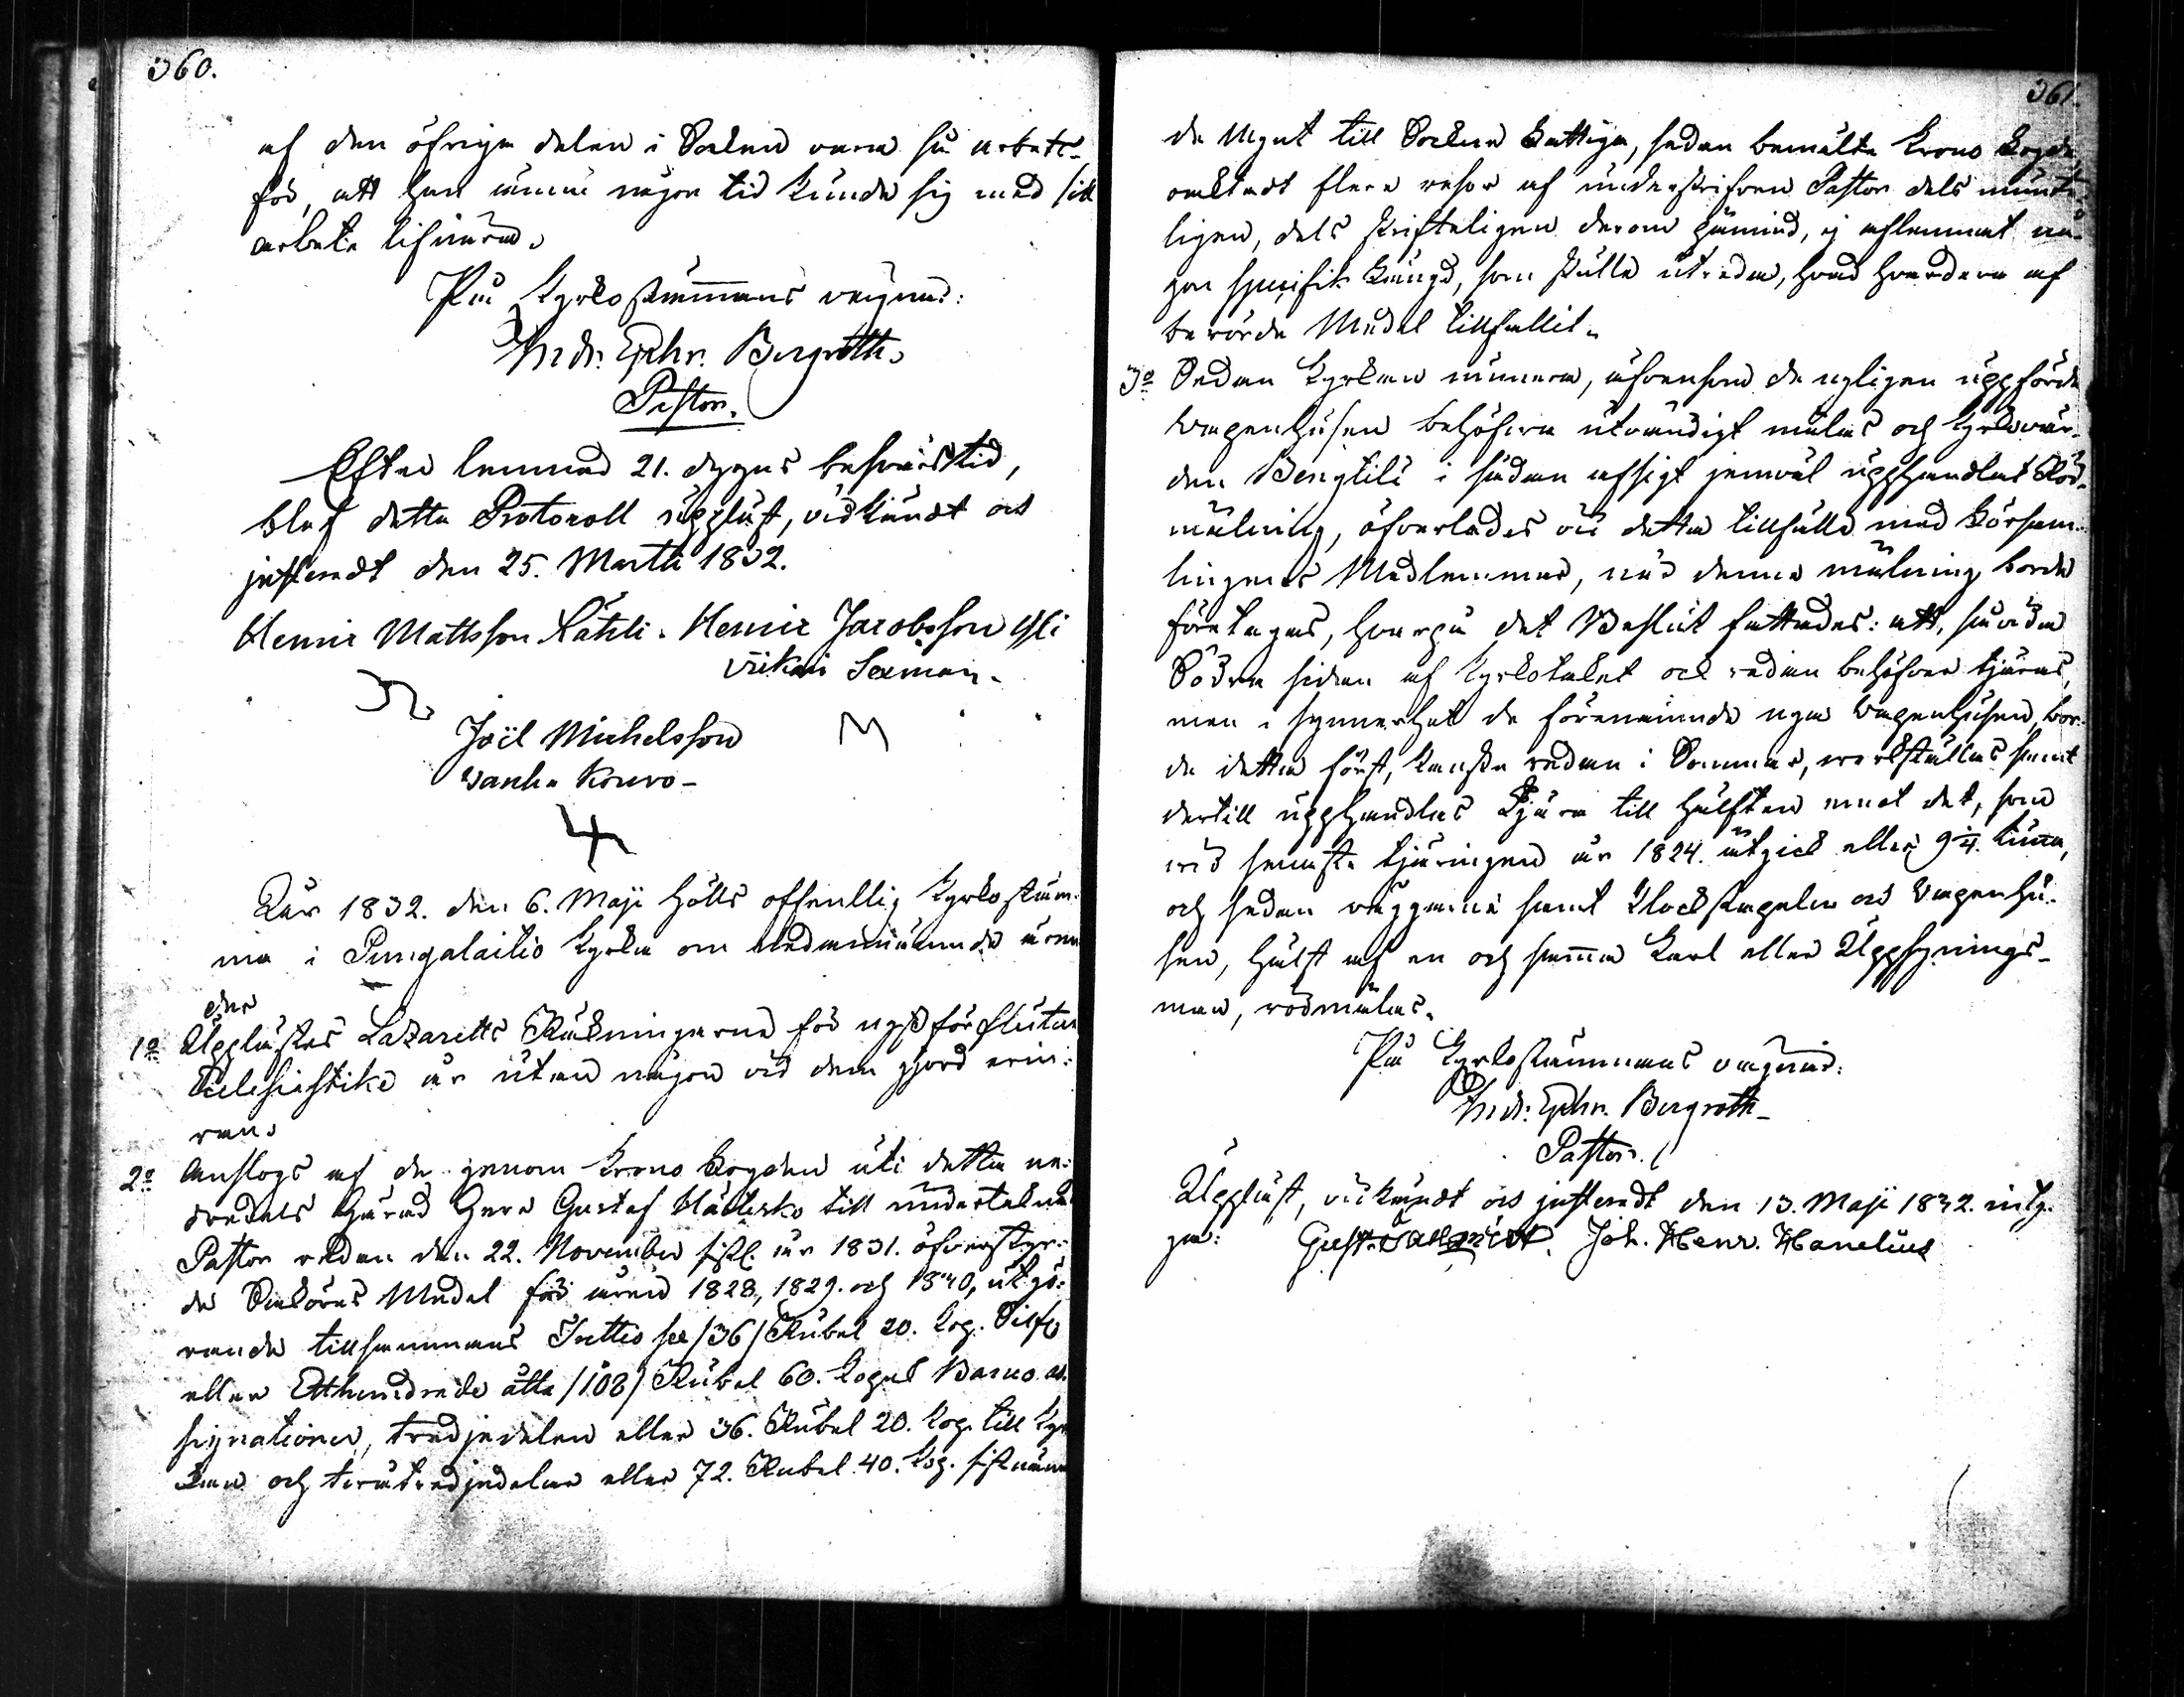 360.
af den öfriga delen i Socknen vara så arbets-
för, att han ännu någon tid kunde sig med sitt
arbete lifnära.
På Kyrkostämmans vägnar:
Andr. Ephr. Bergroth.
Pastor.
Efter lemnad 21. dygns besvärstid,
blef detta Protocoll uppläst, vidkändt och
justeradt den 25. Martii 1832.
Henric Mattsson Kätili. Henric Jacobsson
Seximan.
Joël Michelsson
Vanha Kouvo-
Åhr 1832. den 6. Maji hölls offentlig Kyrkostäm-
ma i Pungalaitio Kyrka om nedannämnde ären-
der
1o Upplästes Lazaretts Räkningarne för nyss förflutna
Ecclesiastike år utan någon vid dem gjord erin-
ran.
2o Anslogs af de genom Krono Fogden uti detta ne-
dredels Härad Herr Gustaf till undertecknad
Pastor redan den 22. November sistl. år 1831. öfverstyr-
de Sakörs Medel för åren 1828, 1829. och 1830, utgö-
rande tillsammans Trettio sex /36/ Rubel 20. Kop. Silfver
eller Etthundrade åtta /108/ Rubel 60. Kopek Banco as-
signationer, tredjedelen eller 36. Rubel 20. Kop. till Kyr-
kan och tvåtredjedelar eller 72. Rubel 40. Kop. sistnämn-
361.
de Mynt till Socknens Fattiga, sedan bemälte Krono Fogde,
oaktadt flere resor af underskrifven Pastor dels munte-
ligen, dels skrifteligen derom påmind, ej aflemnat nå-
gon specifik kungd, som skulle utreda, hvad hvardera af
berörde Medel tillfallit.
3o Sedan Kyrkan numera, äfvensom de nyligen uppförde
Vapenhusen behöfva utvändigt målas och Kyrkovär-
den Bengtili i sådan afsigt jemväl upphandlat Röd-
målning, öfverlades vid detta tillfälle med Försam-
lingens Medlemmar, när denna målning borde
företagas, hvarpå det Beslut fattades: att, såvida
Södra sidan af Kyrkotaket ock redan behöfver tjäras,
men i synnerhet de förenämnde nya Vapenhusen, bor-
de detta först, kanske redan i Sommar, verkställas samt
dertill upphandlas Tjära till hälften emot det, som
vid senaste tjäringen år 1824. åtgick eller 9 1/4. tunna,
och sedan väggarne samt Klockstapeln och Vapenhu-
sen, hälst af en och samma Karl eller Uppsynings-
man, rödmålas.
På Kyrkostämmans vägnar:
Andr. Ephr. Bergroth-
Pastor.
Uppläst, vidkändt och justeradt den 13. Maji 1832. intyga:
Joh. Henr. Hanelius